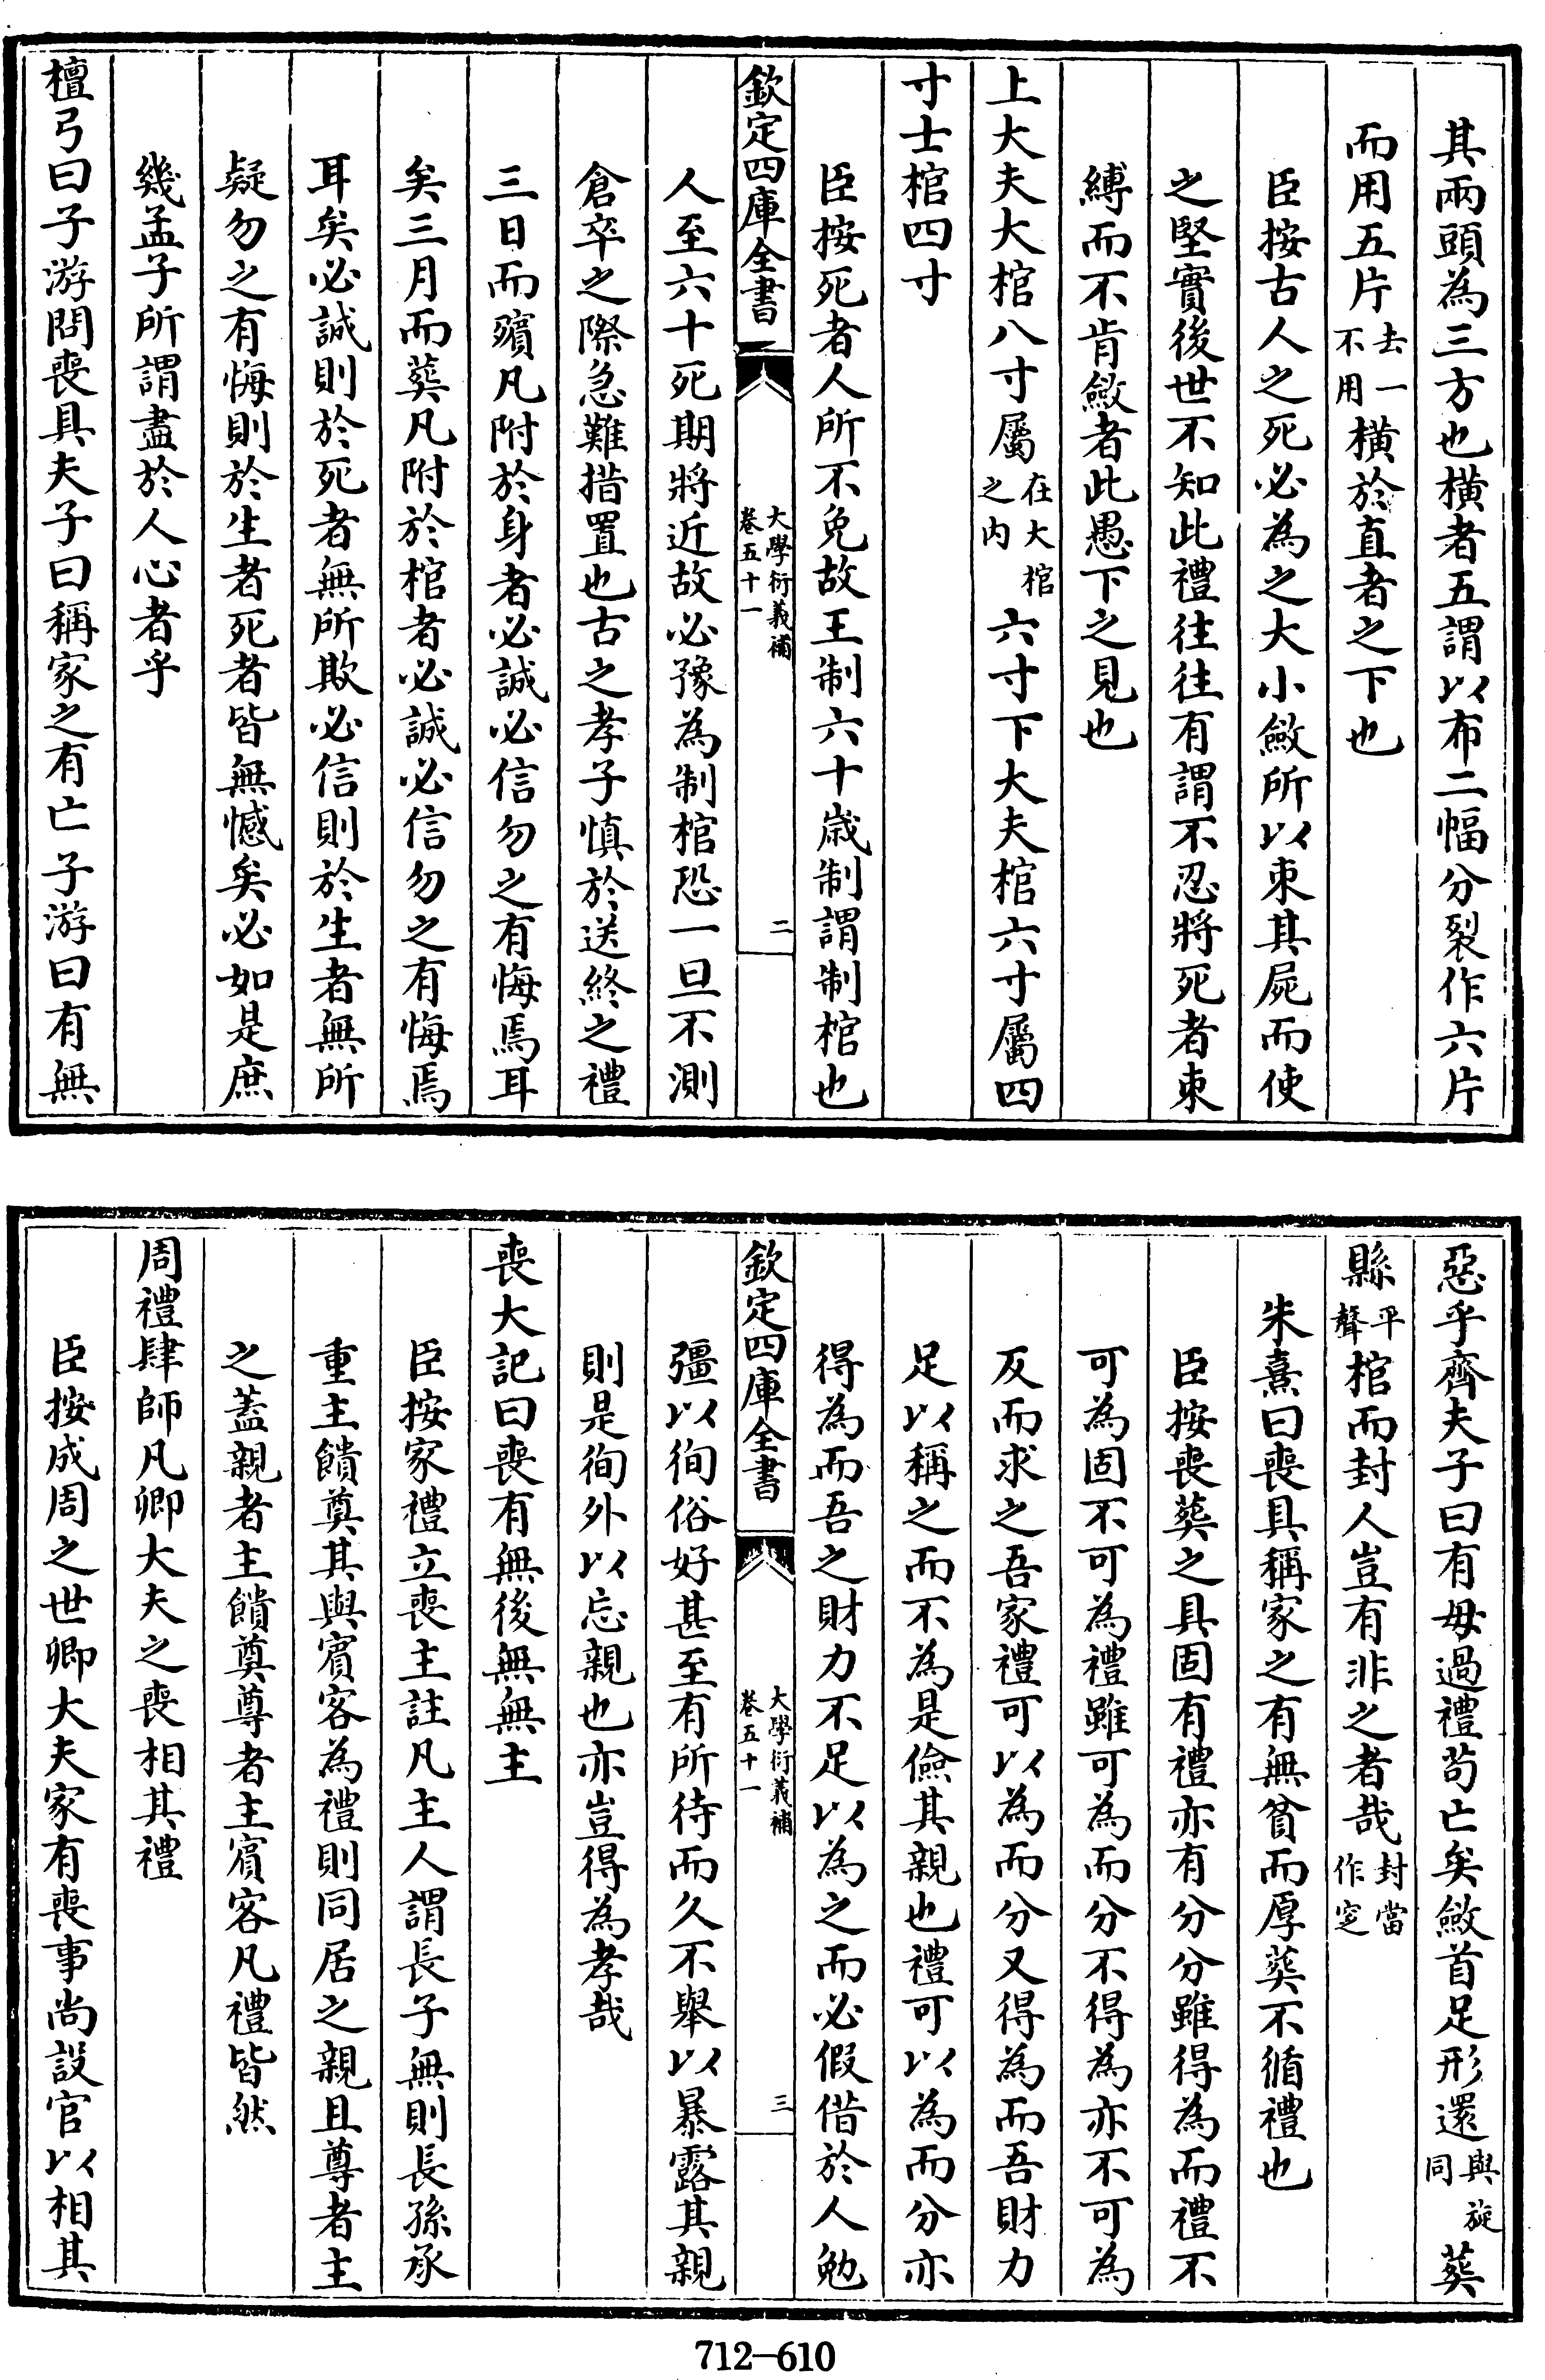 其兩頭為三方也橫者五謂以布二幅分裂作六片
而用五片去一不用橫於直者之下也
臣按古人之死必為之大小斂所以束其屍而使
之堅實後世不知此禮往往有謂不忍將死者束
縛而不肯斂者此愚下之見也
上大夫大棺八寸屬在大棺之內六寸下大夫棺六寸屬四
寸士棺四寸
臣按死者人所不免故王制六十歲制謂制棺也
欽定四庫全書 大學衍義補 卷五十一 二
人至六十死期將近故必豫為制棺恐一旦不測
倉卒之際急難措置也古之孝子慎於送終之禮
三日而殯凡附於身者必誠必信勿之有悔焉耳
矣三月而葬凡附於棺者必誠必信勿之有悔焉
耳矣必誠則於死者無所欺必信則於生者無所
疑勿之有悔則於生者死者皆無憾矣必如是庶
幾孟子所謂盡於人心者乎
檀弓曰子游問喪具夫子曰稱家之有亡子游曰有無
惡乎齊夫子曰有毋過禮苟亡矣斂首足形還與旋同葬
縣平聲棺而封人豈有非之者哉封當作窆
朱熹曰喪具稱家之有無貧而厚葬不循禮也
臣按喪葬之具固有禮亦有分分雖得為而禮不
可為固不可為禮雖可為而分不得為亦不可為
反而求之吾家禮可以為而分又得為而吾財力
足以稱之而不為是儉其親也禮可以為而分亦
得為而吾之財力不足以為之而必假借於人勉
欽定四庫全書 大學衍義補 卷五十一 三
彊以徇俗好甚至有所待而久不舉以暴露其親
則是徇外以忘親也亦豈得為孝哉
喪大記曰喪有無後無無主
臣按家禮立喪主註凡主人謂長子無則長孫承
重主饋奠其與賓客為禮則同居之親且尊者主
之蓋親者主饋奠尊者主賓客凡禮皆然
周禮肆師凡卿大夫之喪相其禮
臣按成周之世卿大夫家有喪事尚設官以相其
712—610